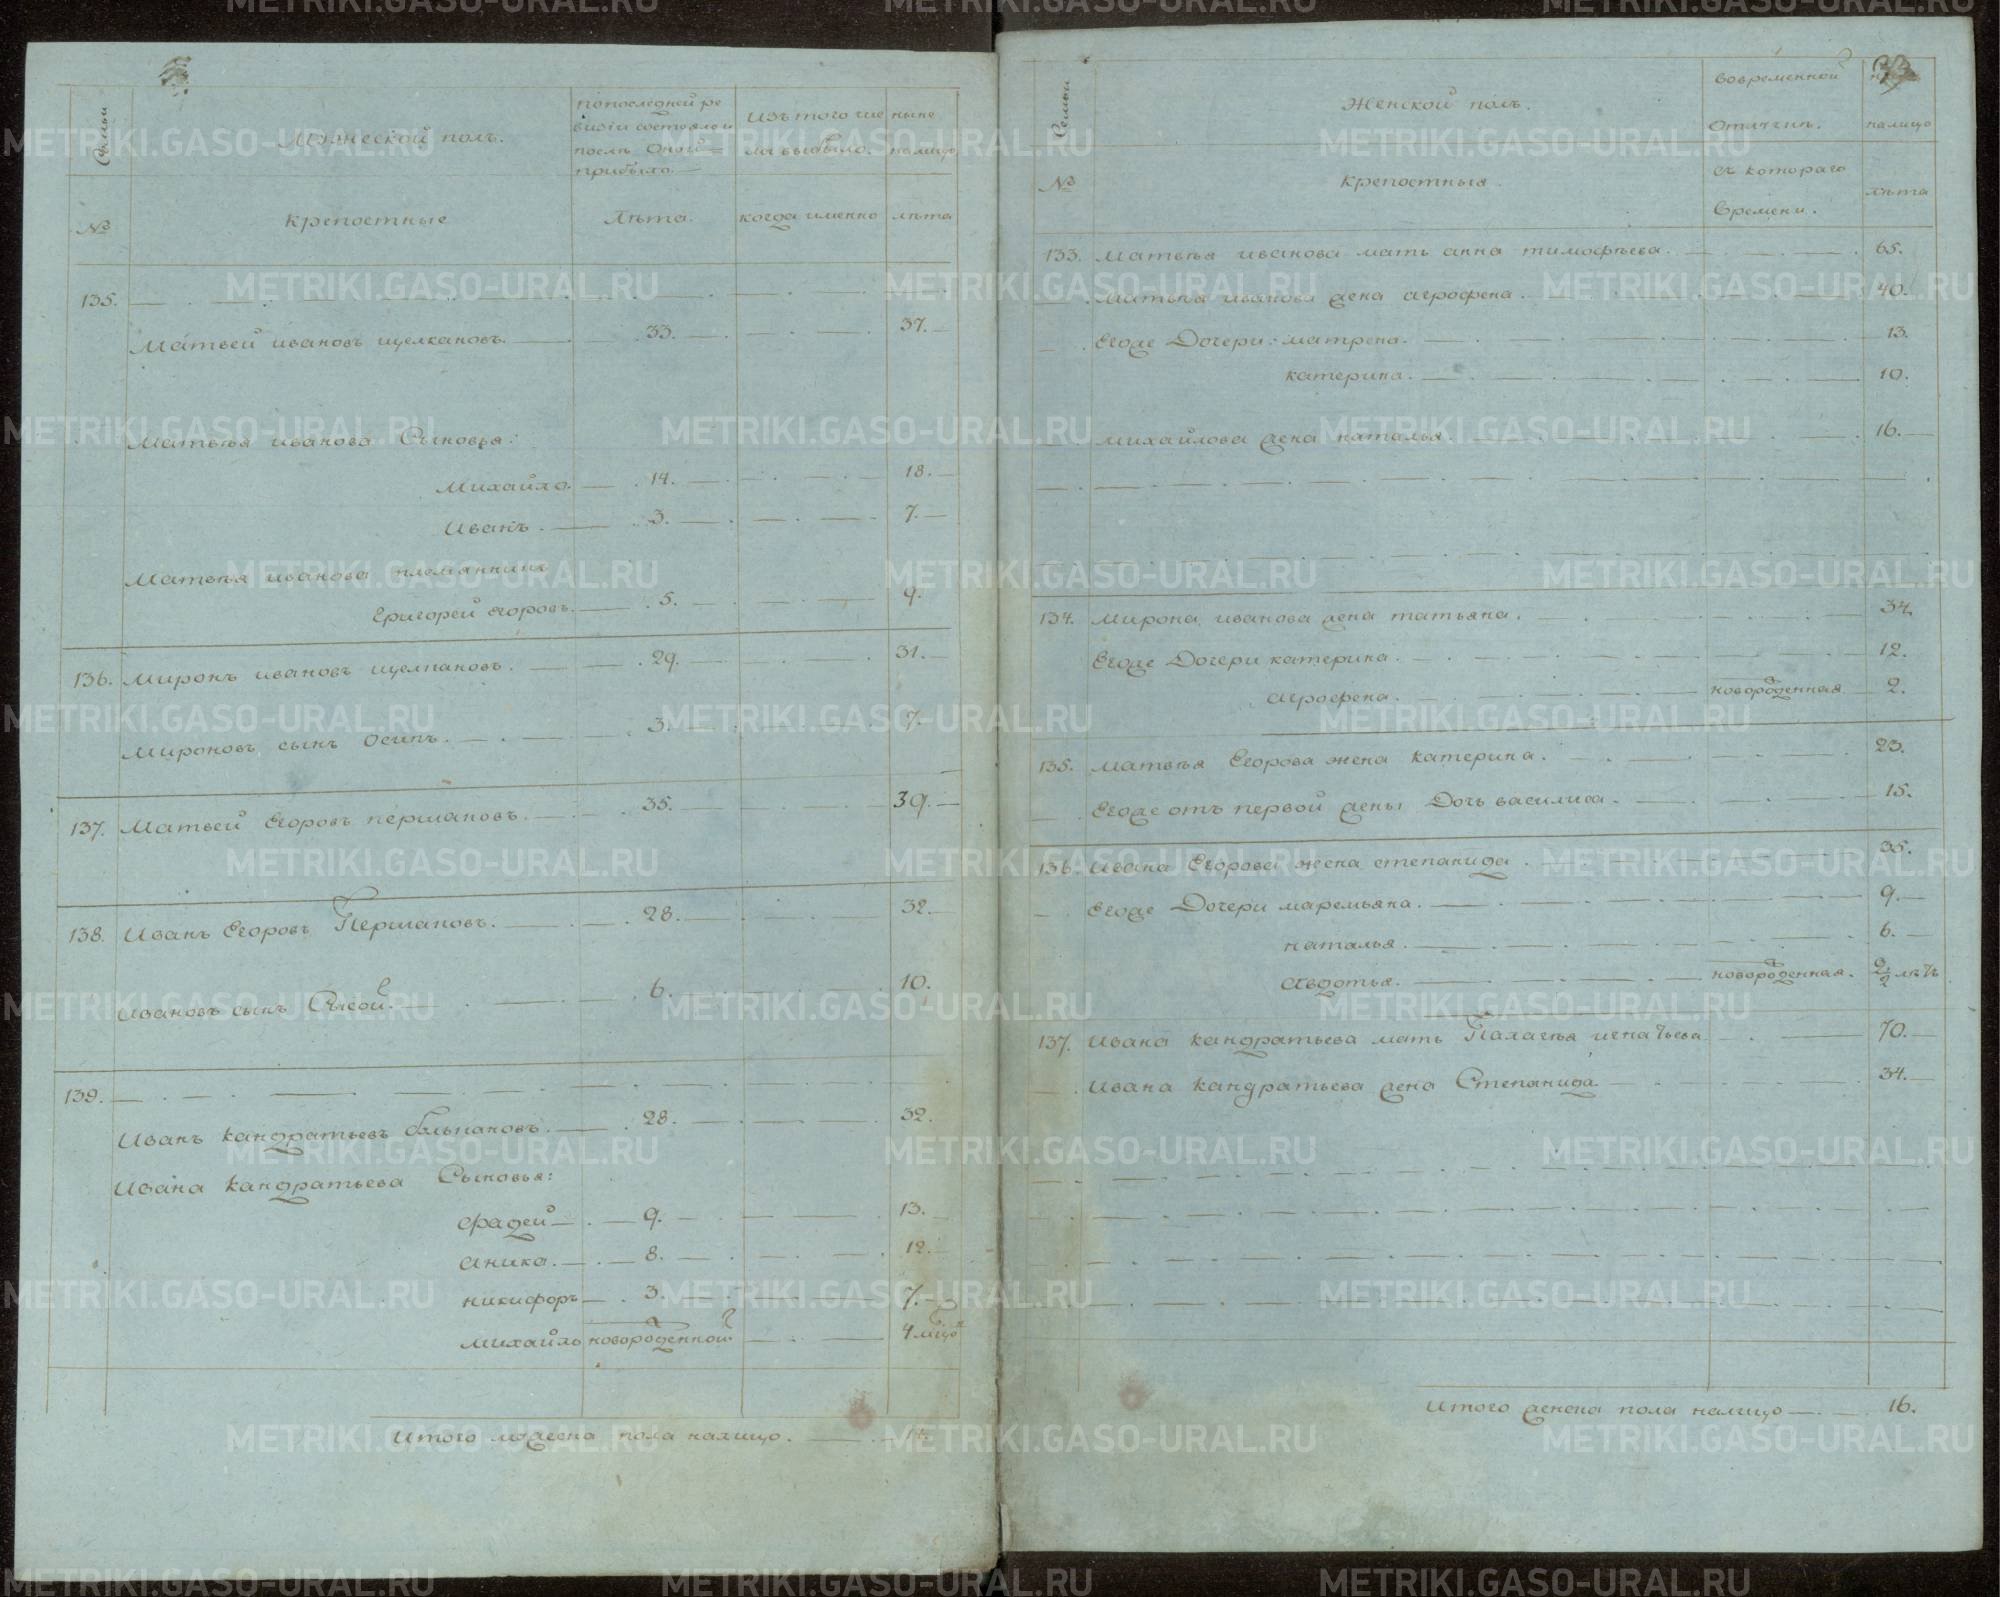 Семьи
Мужеской полъ.
попоследней ре
визіи состояло и
послѣ Оной
прибыло.
Изъ того чис
ла выбыло
ныне
налицо
№
крепостные
Лѣта.
когда именно
лѣта
135.
Матвей ивановъ щелкановъ. 33. 37.
Матвѣя иванова Сыновья:
Михайло. 14. 18.
Иванъ. 3. 7.
Матвѣя иванова племянникъ
Григорей егоровъ. 5. 9.
136. Миронъ ивановъ щелкановъ. 29. 31.
Мироновъ сынъ осипъ. 3. 7.
137. Матвей Егоровъ першановъ. 35. 39.
138. Иванъ Егоровъ Першановъ. 28. 32.
Ивановъ сынъ Сысой. 6. 10.
139.
Иванъ кандратьевъ 28. 32.
Ивана кандратьева Сыновья:
фадей 9. 13.
Аника. 8. 12.
никифоръ 3. 7.
михайло новорожденной 4
Итого мужеска пола налицо.
33
Семьи
Женской полъ.
вовременной
отлучкѣ.
налицо
№
крепостныя.
съ котораго
времени.
лѣта
133. Матвѣя иванова мать анна тимофѣева. 65.
Матвѣя иванова жена агрофена. 40.
Егоже Дочери: матрена. 13.
катерина. 10.
михайлова жена наталья. 16.
134. Мирона иванова жена татьяна. 34.
Егоже Дочери катерина. 12.
агрофена. новорожденная 2.
135. матвѣя Егорова жена катерина. 23.
Егоже отъ первой жены Дочь василиса. 15.
136. Ивана Егорова жена степанида. 35.
Егоже Дочери маремьяна. 9.
наталья. 6.
Авдотья. новорожденная.
137. Ивана кандратьева мать Палагѣя игнатьева 70.
Ивана кандратьева жена Степанида 34.
Итого женска пола налицо 16.
METRIKI.GASO-URAL.RU